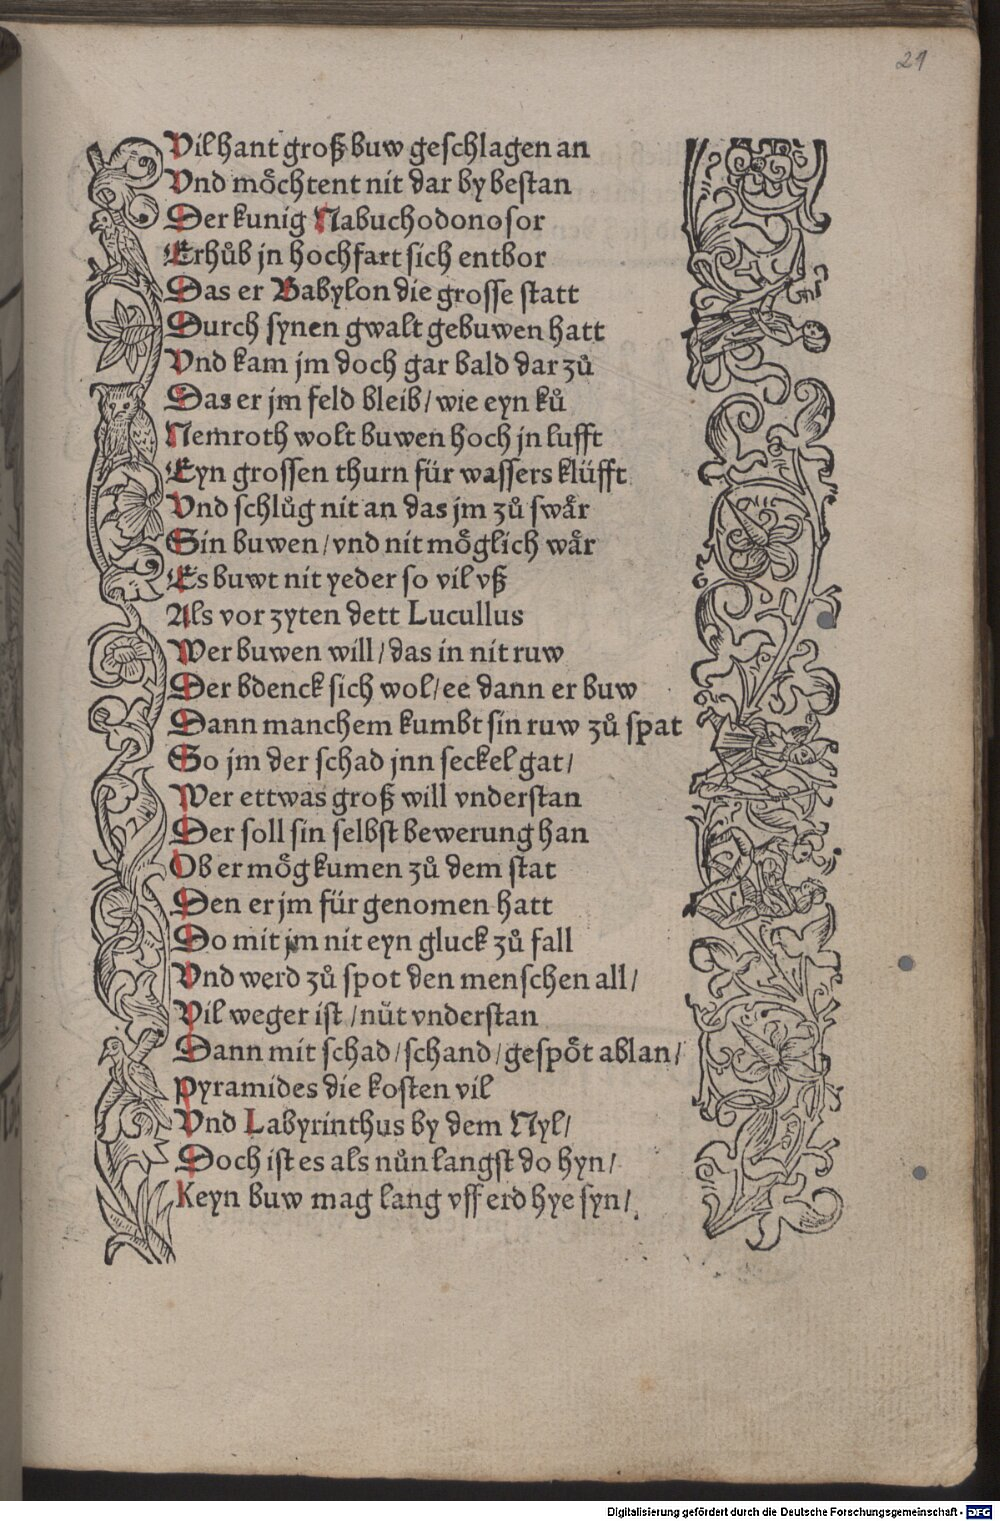 21
Vil hant groß buw geschlagen an
Vnd moͤchtent nit dar by bestan
Der kunig Nabuchodonosor
Erhuͦb jn hochfart sich entbor
Das er Babylon die grosse statt
Durch synen gwalt gebuwen hatt
Vnd kam jm doch gar bald dar zuͦ
Das er jm feld bleib / wie eyn kuͦ
Nemroth wolt buwen hoch jn lufft
Eyn grossen thurn für wassers klüfft
Vnd schluͦg nit an das jm zuͦ swaͤr
Sin buwen / vnd nit moͤglich waͤr
Es buwt nit yeder so vil vß
Als vor zyten dett Lucullus
Wer buwen will / das in nit ruw
Der bdenck sich wol / ee dann er buw
Dann manchem kumbt sin ruw zuͦ spat
So jm der schad jnn seckel gat /
Wer ettwas groß will vnderstan
Der soll sin selbst bewerung han
Ob er moͤg kumen zuͦ dem stat
Den er jm für genomen hatt
Do mit jm nit eyn gluck zuͦ fall
Vnd werd zuͦ spot den menschen all /
Vil weger ist / nüt vnderstan
Dann mit schad / schand / gespoͤt ablan /
Pyramides die kosten vil
Vnd Labyrinthus by dem Nyl /
Doch ist es als nuͦn langst do hyn /
Keyn buw mag lang vff erd hye syn /
Digitalisierung gefördert durch die Deutsche Forschungsgemeinschaft - DFG